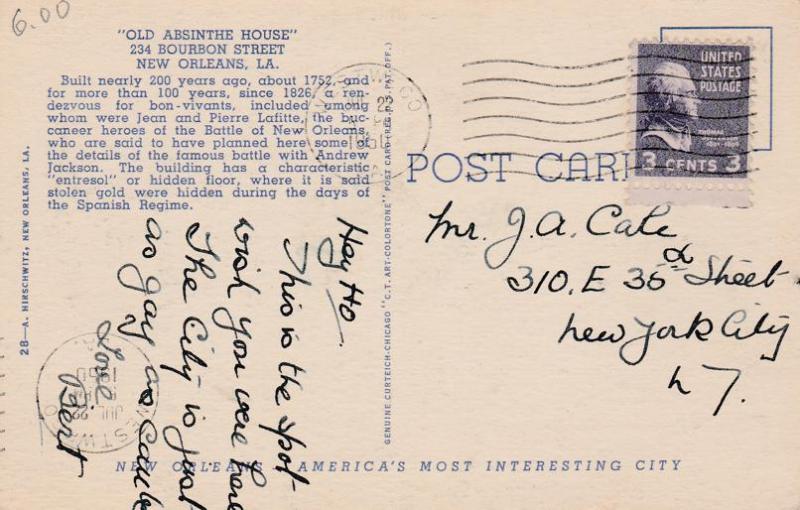 6.00
"OLD ABSINTHE HOUSE"
234 BOURBON STREET
NEW ORLEANS, LA.
Built nearly 200 years ago, about 1752, and
for more than 100 years, since 1826, a ren-
dezvous for bon-vivants, included among
whom were Jean and Pierre Lafitte, the buc-
caneer heroes of the Battle of New Orleans,
who are said to have planned here some of
the details of the famous battle with Andrew
Jackson. The building has a characteristic
"entresol" or hidden floor, where it is said
stolen gold were hidden during the days of
the Spanish Regime.
28—A. HIRSCHWITZ, NEW ORLEANS, LA.
Hey Ho
This is the spot
wish you were here
The City is just
as gay as
Love
Bert
WESTWEGO
JUL 22
1950
GENUINE CURTEICH-CHICAGO "C.T. ART-COLORTONE" POST CARD (REG. U.S. PAT. OFF.)
WESTWEGO
POST CARD
UNITED
STATES
POSTAGE
THOMAS
3 CENTS 3
Mr. J. A. Cale
310. E 35th Street
New York City
N Y.
NEW ORLEANS AMERICA'S MOST INTERESTING CITY